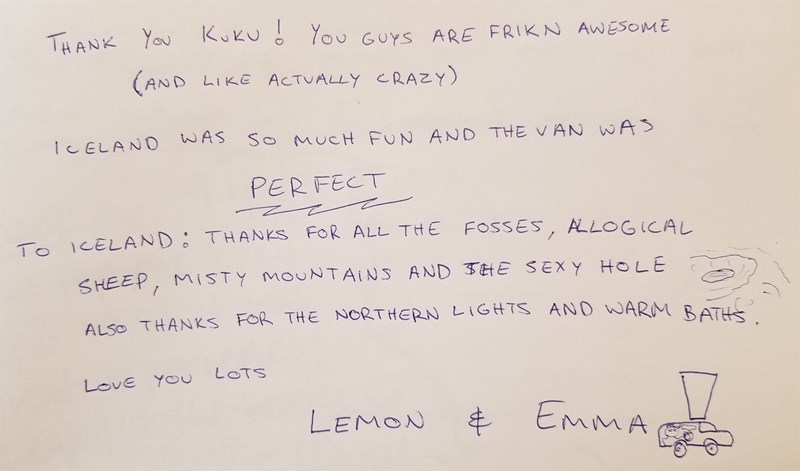 THANK YOU KUKU! YOU GUYS ARE FRIKN AWESOME
(AND LIKE ACTUALLY CRAZY)
ICELAND WAS SO MUCH FUN AND THE VAN WAS
PERFECT
TO ICELAND: THANKS FOR ALL THE FOSSES, ALLOGICAL
SHEEP, MISTY MOUNTAINS AND THE SEXY HOLE
ALSO THANKS FOR THE NORTHERN LIGHTS AND WARM BATHS.
LOVE YOU LOTS
LEMON & EMMA